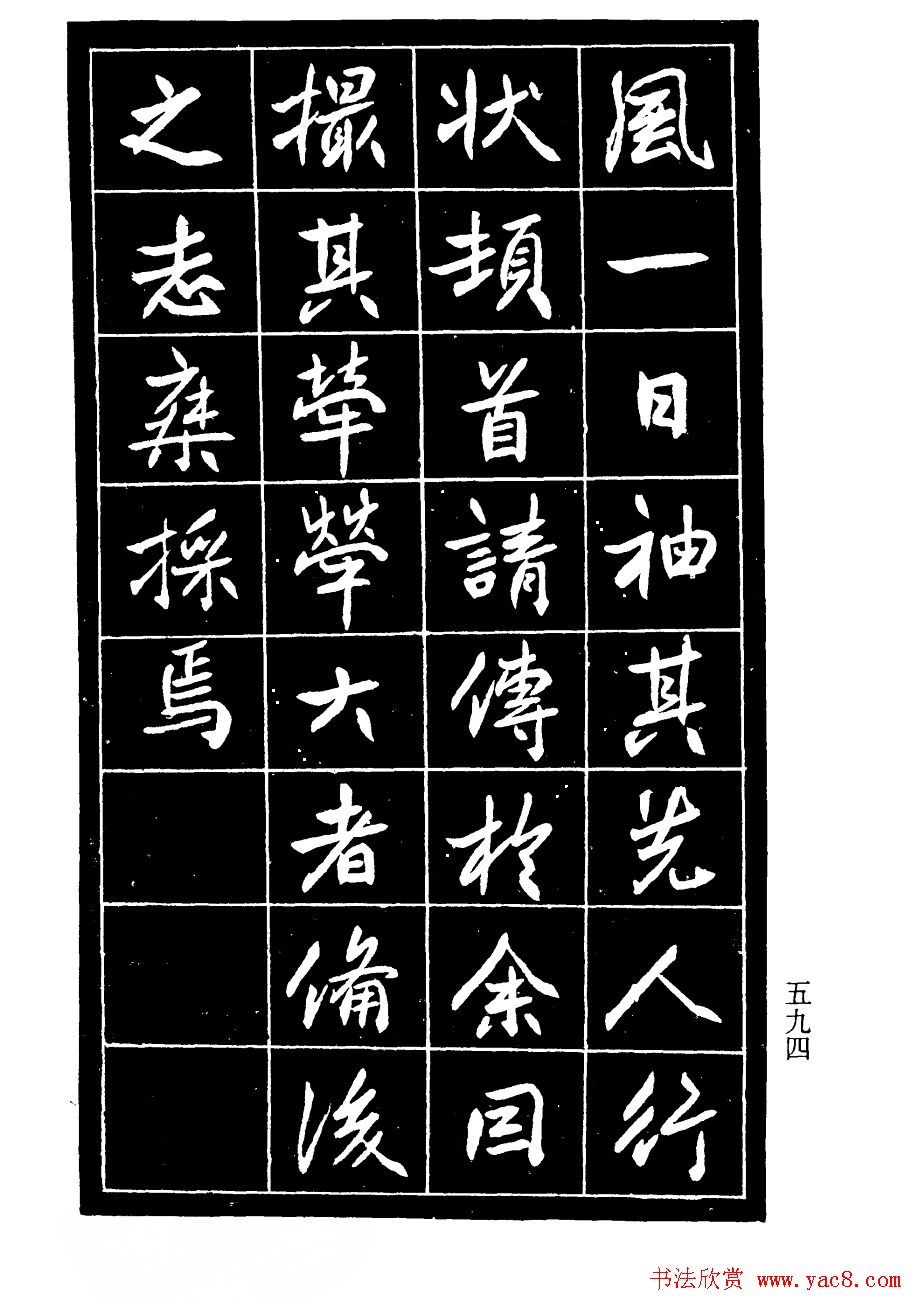 風一日袖其先人行
状頓首請傳於余因
撮其犖犖大者備後
之志乘採焉
五九四
书法欣赏 www.yac8.com